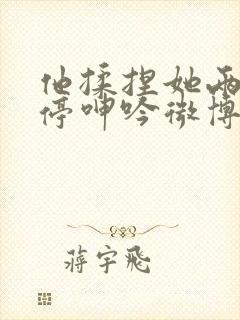 他揉捏她两
停呻吟微博
蒋宇飞